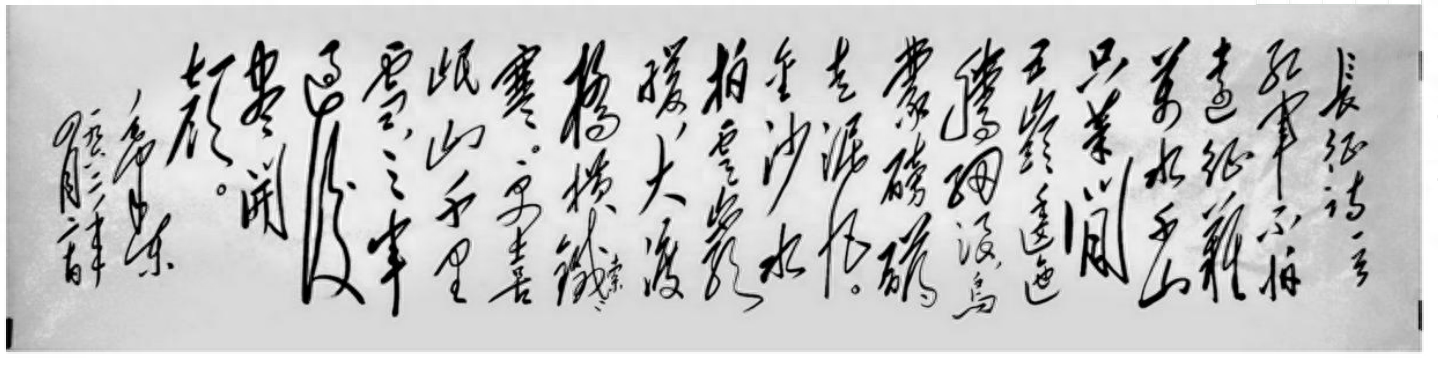 長征诗一首
红軍不怕
遠征難
萬水千山
只等閒
五嶺逶迤
騰細浪,烏
蒙磅礴
走泥丸。
金沙水
拍雲崖
暖,大渡
橋橫鐵索
寒。更喜
岷山千里
雪,三軍
過後
盡開
顏。
毛澤東
一九六二年
四月二十日